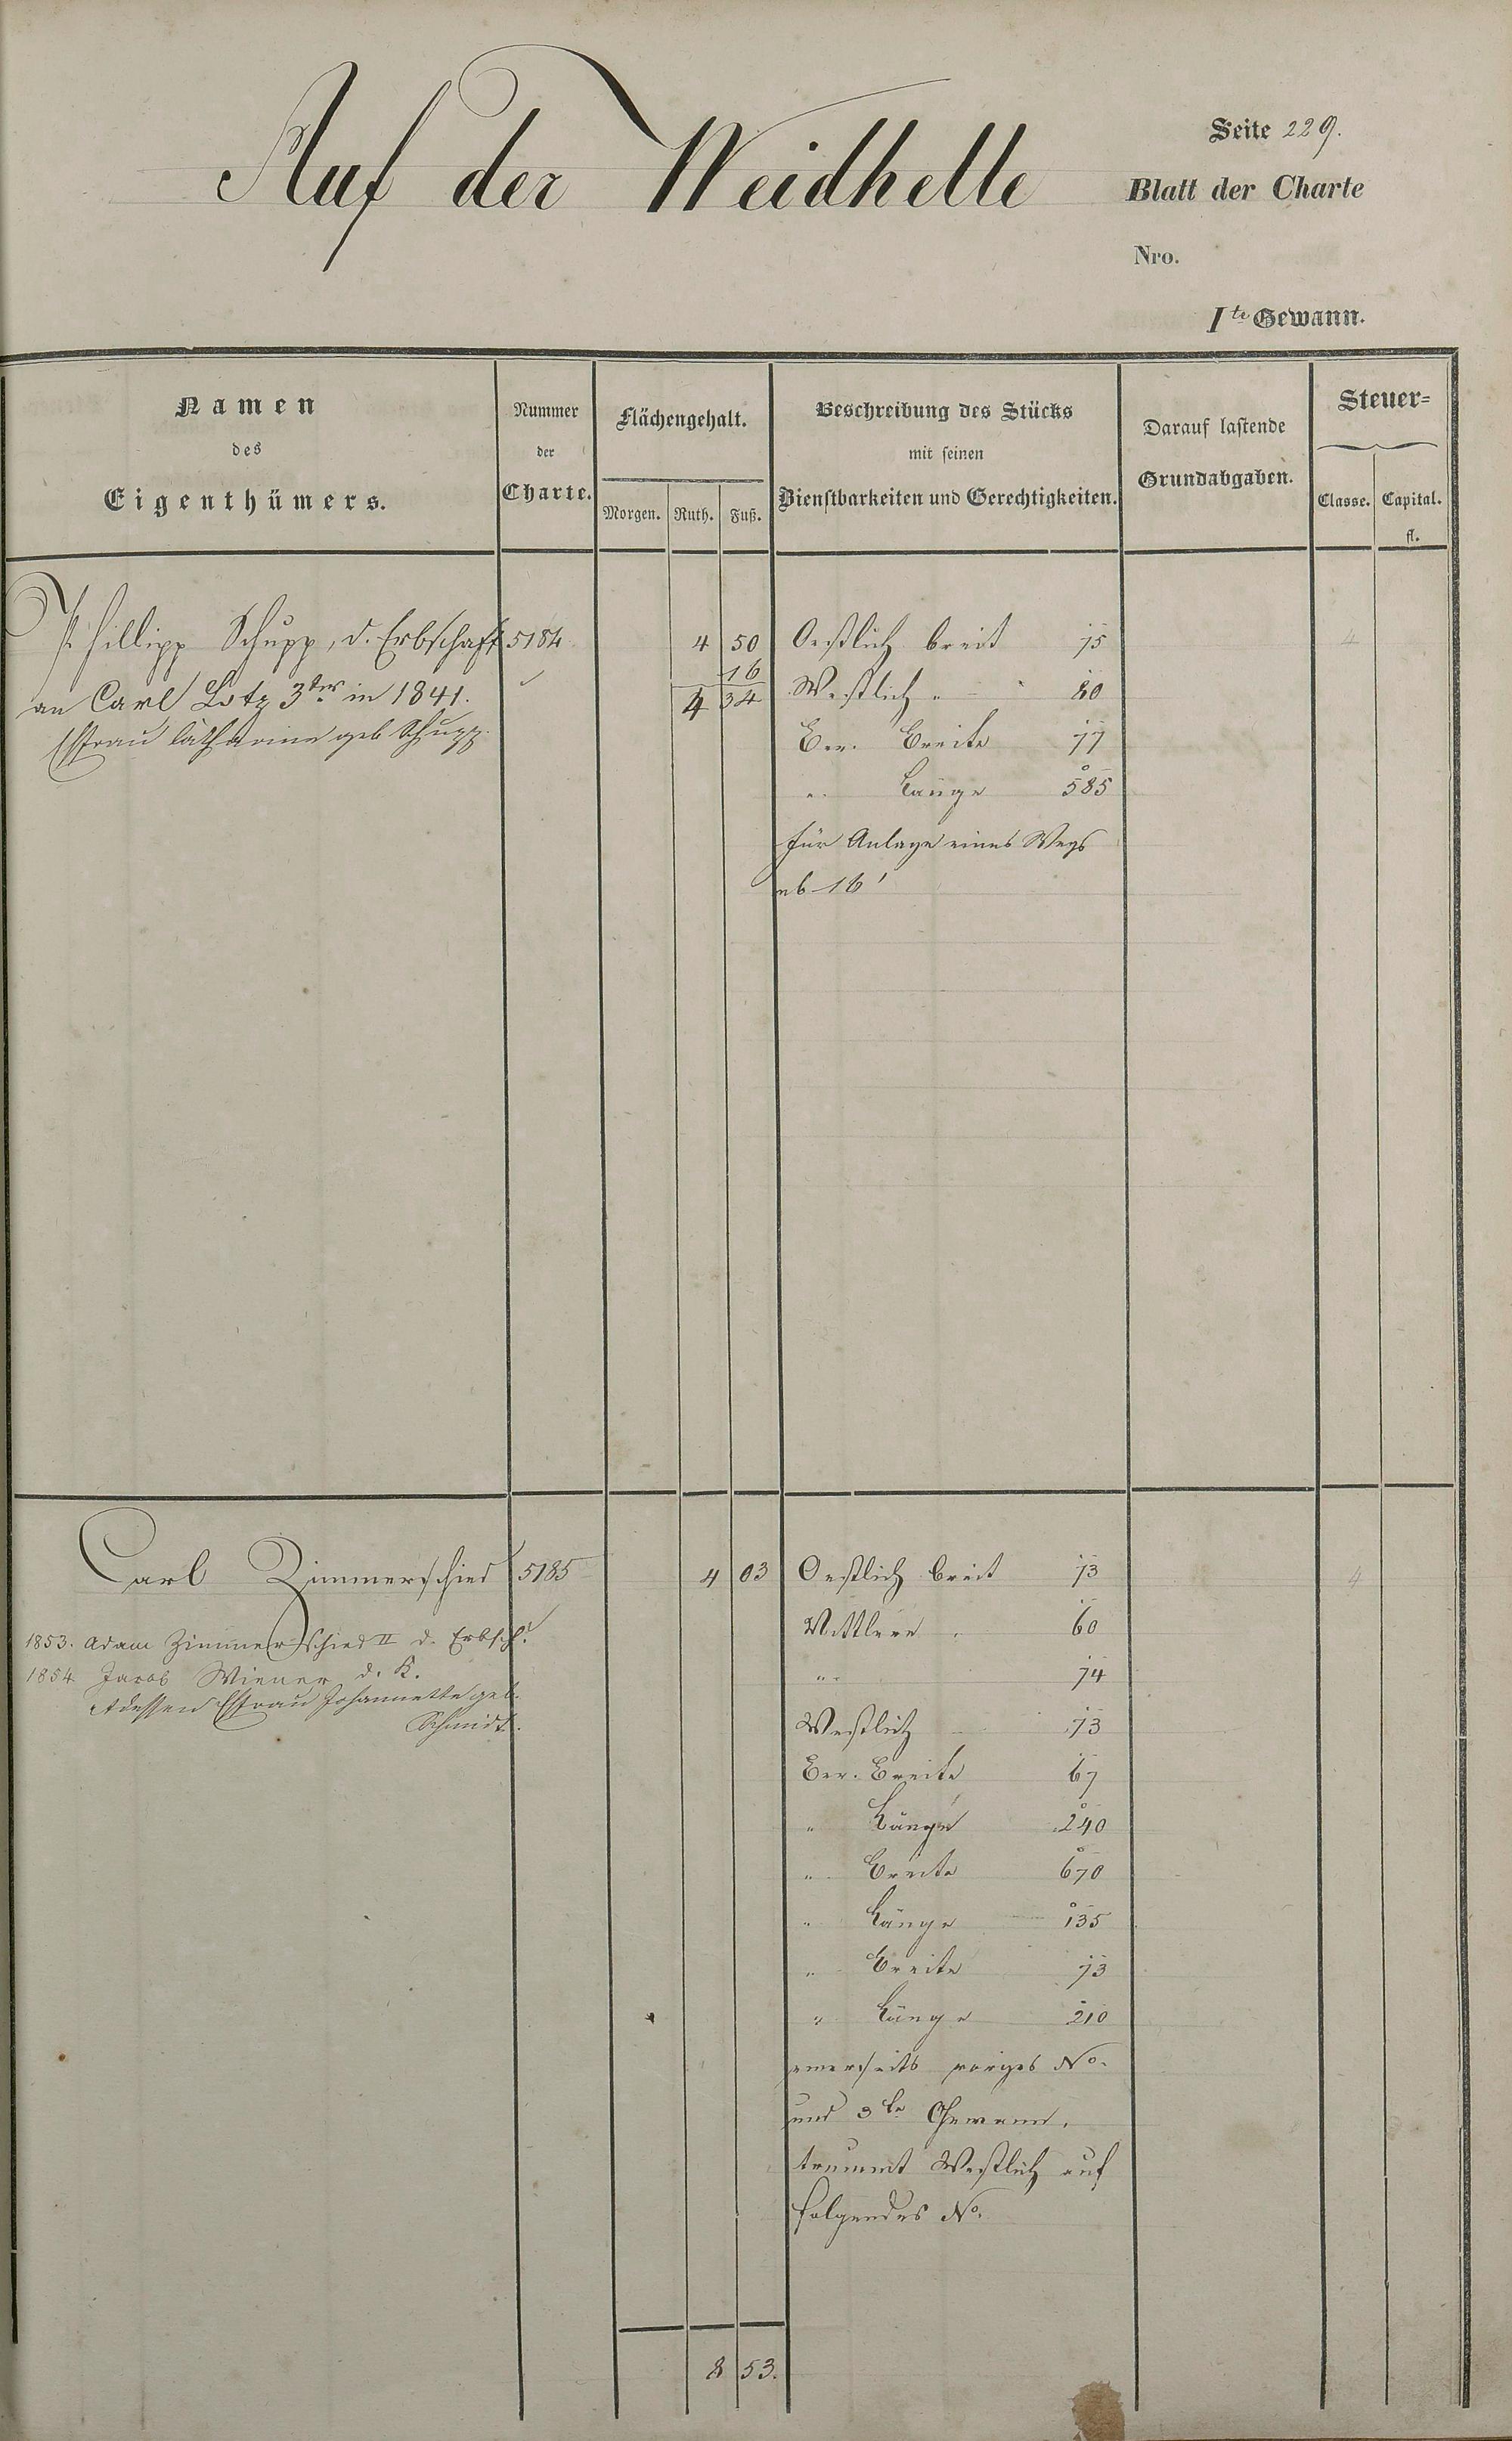 Auf der Weidhelle
Seite 229.
Blatt der Charte
Nro.
I te Gewann.
Namen des Eigenthümers.
Nummer der Charte.
Flächengehalt.
Morgen. Ruth. Fuß.
Beschreibung des Stücks mit seinen Dienstbarkeiten und Gerechtigkeiten.
Darauf lastende Grundabgaben.
Steuer=
Classe. Capital. fl.
Phillipp Schupp, d. Erbschaft 5184 4 50 Oestlich breit 75 4
16
an Carl Lotz 3ter in 1841. 4 34 Westlich " 80
Ehfrau Catharine geb Schupp. Ber. Breite 77
" Länge 585
für Anlage eines Wegs
ab 16'
Carl Zimmerschied 5185 4 03 Oestlich breit 73 4
1853. Adam Zimmerschied II d. Erbsch. Mittlere " 60
1854 Jacob Wiener d. K. " 74
dessen Ehfrau Johannette geb.
Schmidt. Westlich 73
Ber. Breite 67
" Länge 240
" Breite 670
" Länge 135
" Breite 73
" Länge 210
einerseits voriges No.
und 3te Gewann,
trummt Westlich auf
folgendes No.
8 53.